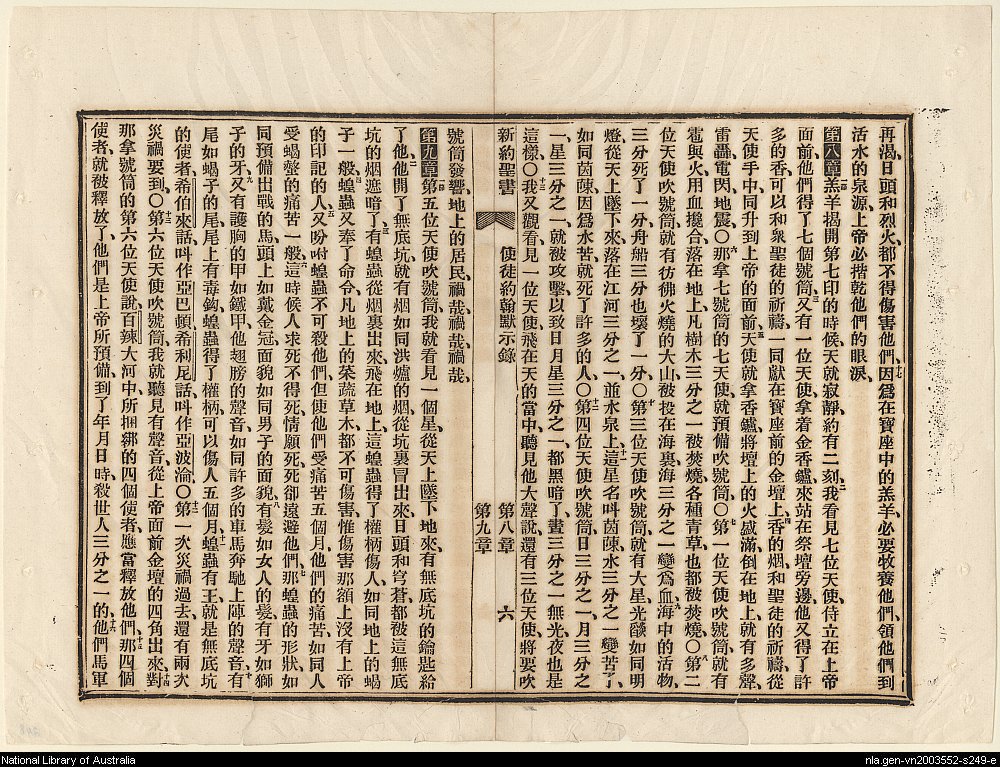 再渴、日頭和烈火、都不得傷害他們、因爲在寶座中的羔羊、必要牧養他們、領他們到
活水的泉源、上帝必揩乾他們的眼淚、
第八章 羔羊揭開第七印的時候、天就寂靜約有二刻、我看見七位天使侍立在上帝
面前、他們得了七個號筒、又有一位天使、拿着金香鑪、來站在祭壇旁邊、他又得了許
多的香、可以和衆聖徒的祈禱、一同獻在寶座前的金壇上、香的烟和聖徒的祈禱、從
天使手中、同升到上帝的面前、天使就拿香鑪、將壇上的火盛滿、倒在地上、就有多聲、
雷轟、電閃、地震、〇那拿七號筒的七天使、就預備吹號筒、〇第一位天使吹號筒、就有
雹與火、用血攙合、落在地上、凡樹木三分之一被焚燒、各種青草、也都被焚燒、〇第二
位天使吹號筒、就有彷彿火燒的大山、被投在海裏、海三分之一變爲血、海中的活物、
三分死了一分、舟船三分也壞了一分、〇第三位天使吹號筒、就有大星、光燄如同明
燈、從天上墜下來、落在江河三分之一、並水泉上、這星名叫茵陳、水三分之一變苦了、
如同茵陳、因爲水苦、就死了許多的人、〇第四位天使吹號筒、日三分之一、月三分之
一、星三分之一、就被攻擊、以致日月星三分之一、都黑暗了、晝三分之一無光、夜也是
這樣、〇我又觀看、見一位天使、飛在天的當中、聽見他大聲說、還有三位天使、將要吹
新約聖書
使徒約翰默示錄
第八章
第九章
六
號筒發響、地上的居民、禍哉、禍哉、禍哉、
第九章 第五位天使吹號筒、我就看見一個星、從天上墜下地來、有無底坑的鑰匙給
了他、他開了無底坑、就有烟如同洪爐的烟、從坑裏冒出來、日頭和穹蒼、都被這無底
坑的烟遮暗了、有蝗蟲從烟裏出來、飛在地上、這蝗蟲得了權柄傷人、如同地上的蝎
子一般、蝗蟲又奉了命令、凡地上的菜蔬草木、都不可傷害、惟傷害那額上沒有上帝
的印記的人、又吩咐蝗蟲、不可殺他們、但使他們受痛苦五個月、他們的痛苦、如同人
受蝎螫的痛苦一般、這時候人求死不得死、情願死、死卻遠避他們、那蝗蟲的形狀、如
同預備出戰的馬、頭上如戴金冠、面貌如同男子的面貌、有髮如女人的髮、有牙如獅
子的牙、又有護胸的甲、如鐵甲、他翅膀的聲音、如同許多的車馬奔馳上陣的聲音、有
尾如蝎子的尾、尾上有毒鈎、蝗蟲得了權柄、可以傷人五個月、蝗蟲有王、就是無底坑
的使者、希伯來話叫作亞巴頓、希利尼話叫作亞波淪、〇第一次災禍過去、還有兩次
災禍要到、〇第六位天使吹號筒、我就聽見有聲音、從上帝面前金壇的四角出來、對
那拿號筒的第六位天使說、百辣大河中所捆綁的四個使者、應當釋放他們、那四個
使者、就被釋放了、他們是上帝所預備、到了年月日時、殺世人三分之一的、他們馬軍